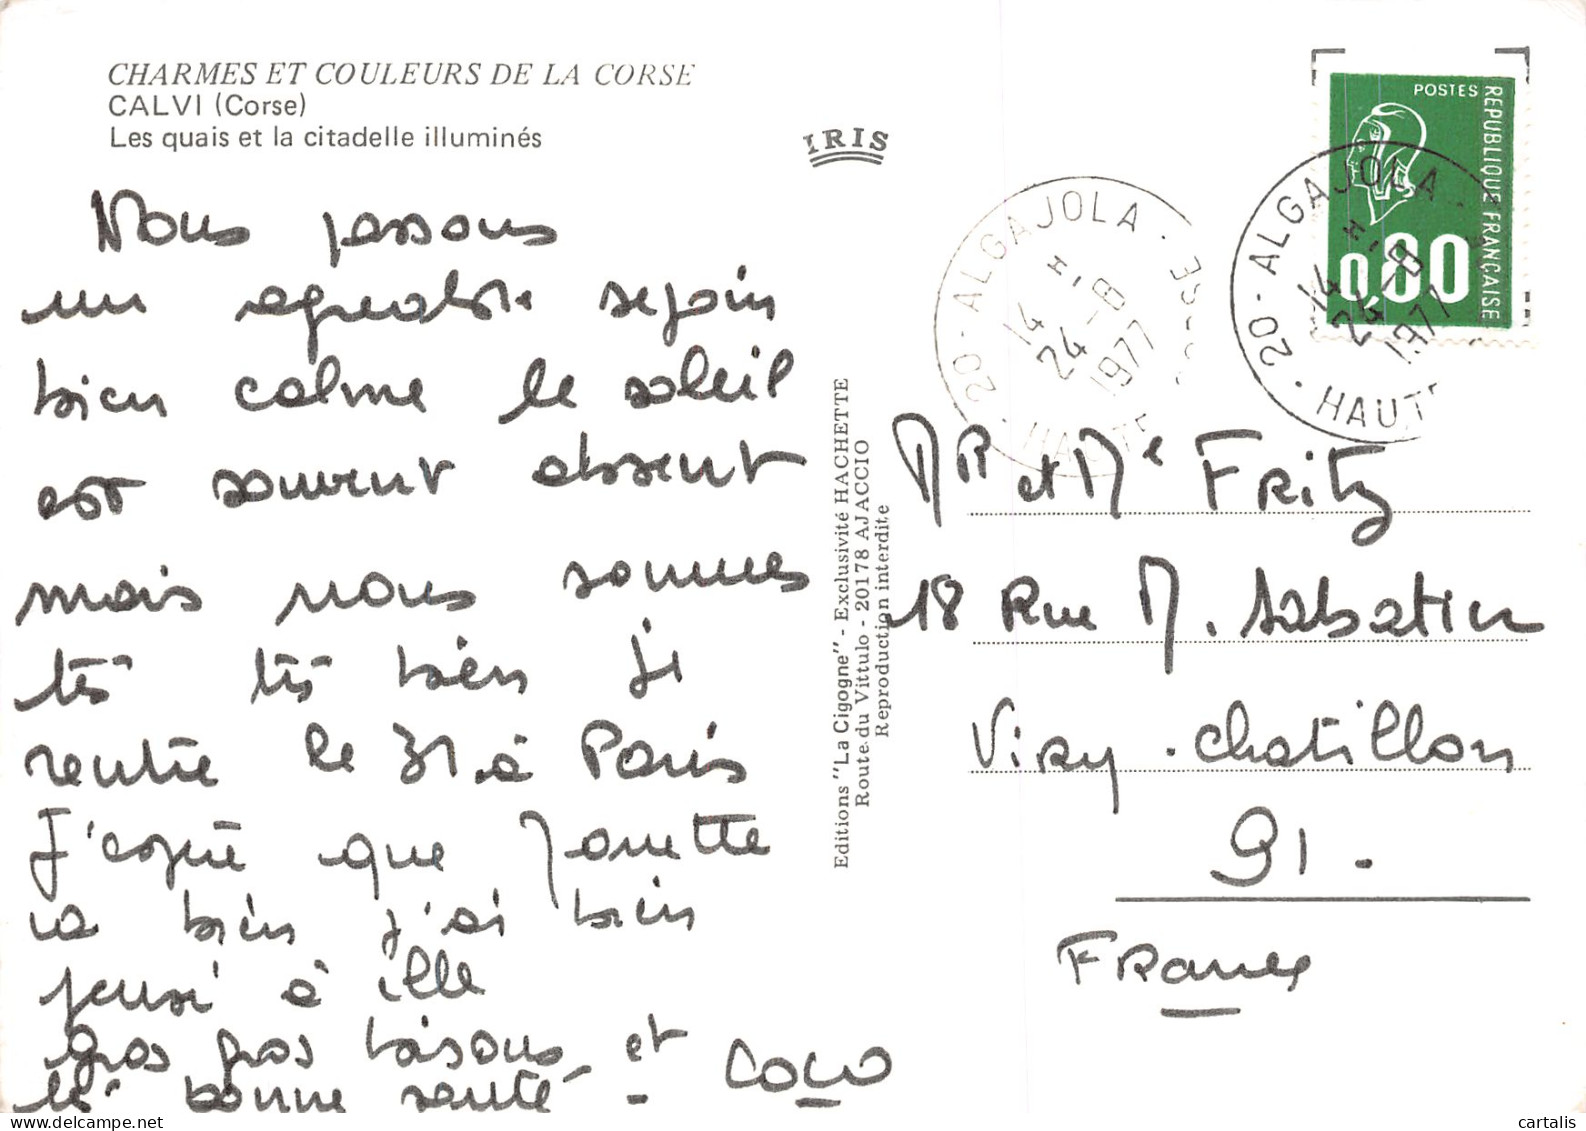 CHARMES ET COULEURS DE LA CORSE
CALVI (Corse)
Les quais et la citadelle illuminés
IRIS
Nous passons
un agreable sejour
bien calme le soleil
est souvent absent
mais nous sommes
tés tés bien je
rentre le 31 à Paris
J'espère que
va bien j'ai bien
pensé à elle
gros gros baisous et
bonne santé - COCO
Editions "La Cigogne" - Exclusivité HACHETTE
Route du Vittulo - 20178 AJACCIO
Reproduction interdite
20 - ALGAJOLA - CORSE
14 H.
24 - 8
1977
HAUTE
POSTES
REPUBLIQUE FRANÇAISE
0,80
20 - ALGAJOLA
14 H.
24 - 8
1977
HAUTE
MR et Me FRitz
18 Rue M. Sabatier
Viry-chatillon
91 -
FRance
cartalis